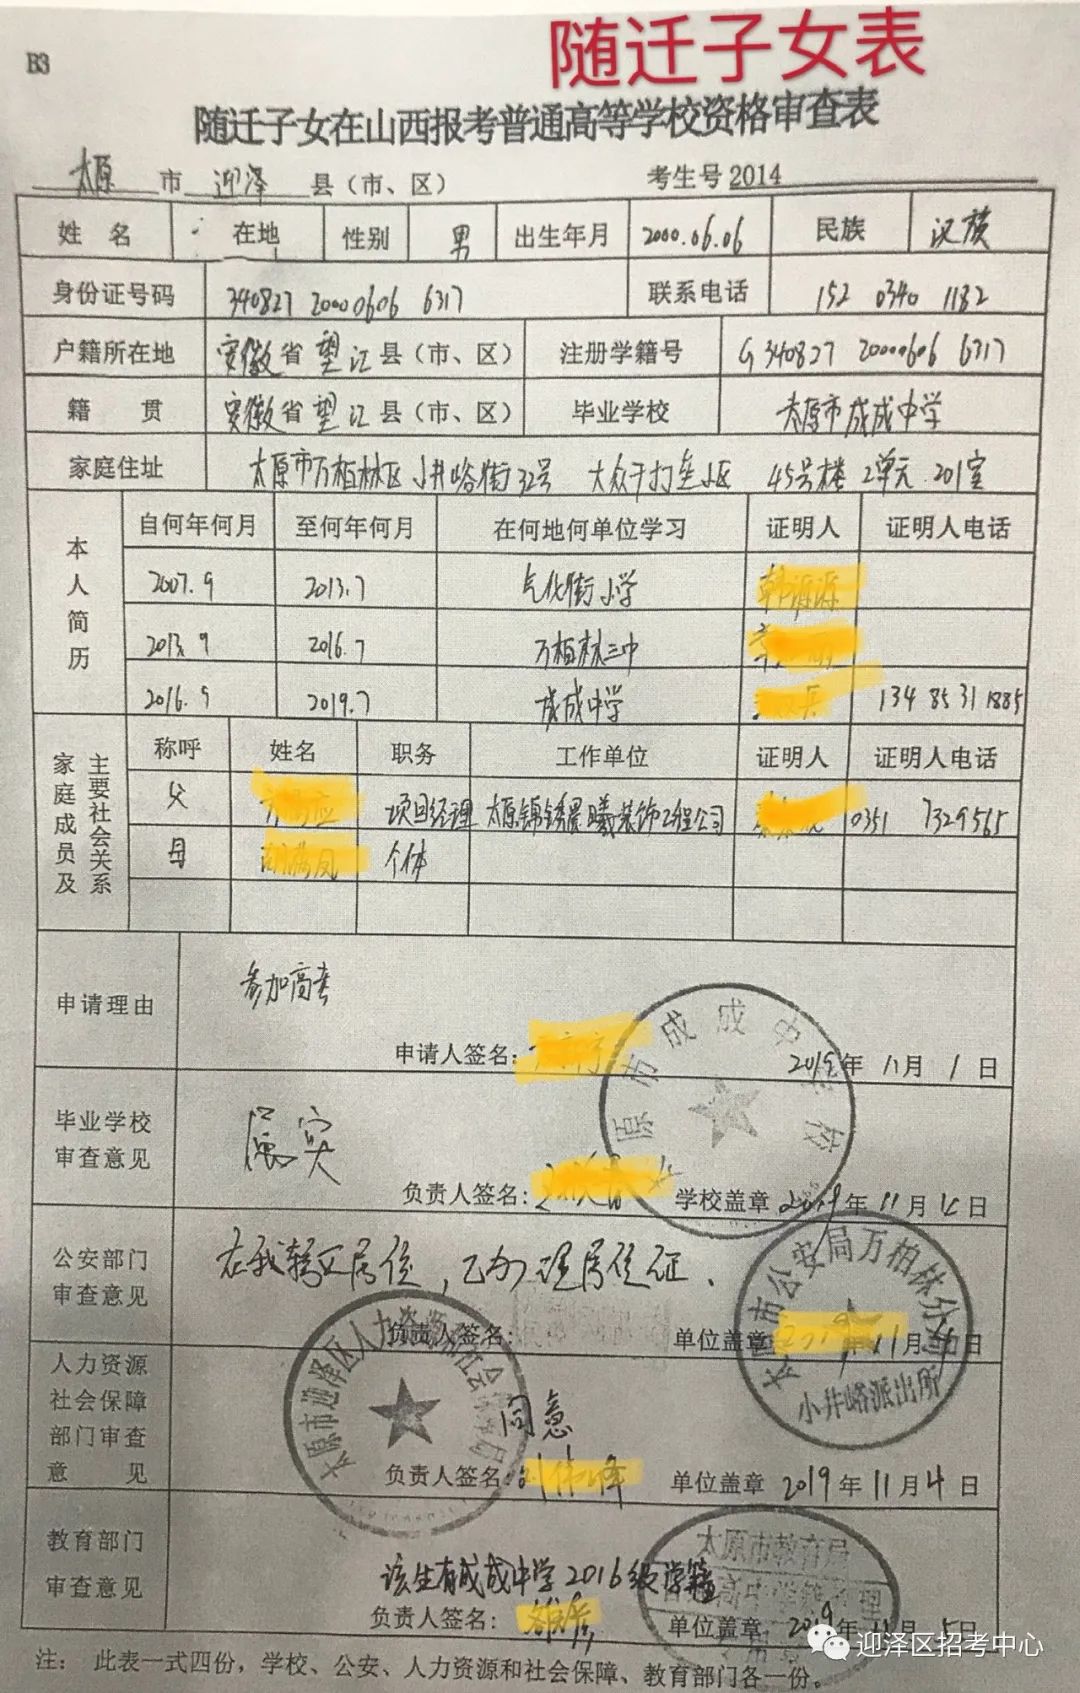 随迁子女表
B3
随迁子女在山西报考普通高等学校资格审查表
太原 市 迎泽 县（市、区） 考生号 2014
姓 名 在地 性别 男 出生年月 2000.06.06 民族 汉族
身份证号码 340827 20000606 6317 联系电话 152 0340 1182
户籍所在地 安徽省望江县（市、区） 注册学籍号 G 340827 20000606 6317
籍 贯 安徽省望江县（市、区） 毕业学校 太原市成成中学
家庭住址 太原市万柏林区小井峪街32号 大众干打垒小区 45号楼 2单元.201室
本人简历 自何年何月 至何年何月 在何地何单位学习 证明人 证明人电话
2007.9 2013.7 气化街小学
2013.9 2016.7 万柏林三中
2016.9 2019.7 成成中学 134 8531 1885
家庭成员及主要社会关系 称呼 姓名 职务 工作单位 证明人 证明人电话
父 项目经理 太原锦绣晨曦装饰工程公司 0351 7329565
母 个体
申请理由 参加高考
申请人签名： 2019年 11月 1日
毕业学校审查意见 属实
负责人签名： 学校盖章 2019年 11月 4日
公安部门审查意见 在我辖区居住，已办理居住证.
负责人签名： 单位盖章 2019年 11月 4日
人力资源社会保障部门审查意见 同意
负责人签名： 单位盖章 2019年 11月 4日
教育部门审查意见 该生有成成中学2016级学籍
负责人签名： 单位盖章 2019年 11月 5日
注： 此表一式四份，学校、公安、人力资源和社会保障、教育部门各一份。
太原市成成中学校
太原市公安局万柏林分局
小井峪派出所
太原市迎泽区人力资源和社会保障局
太原市教育局
迎泽区招考中心